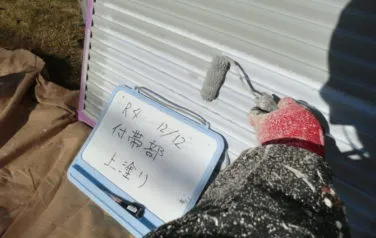 R4 12/12
付帯部
上塗り